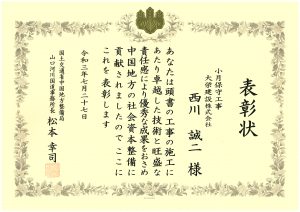 表彰状
小月保守工事
大栄建設株式会社
西川 誠二 様
あなたは頭書の工事の施工に
あたり卓越した技術と旺盛な
責任感により優秀な成果をおさめ
中国地方の社会資本整備に
貢献されましたので ここに
これを表彰します
令和三年七月二十七日
国土交通省中国地方整備局
山口河川国道事務所長 松本 幸司